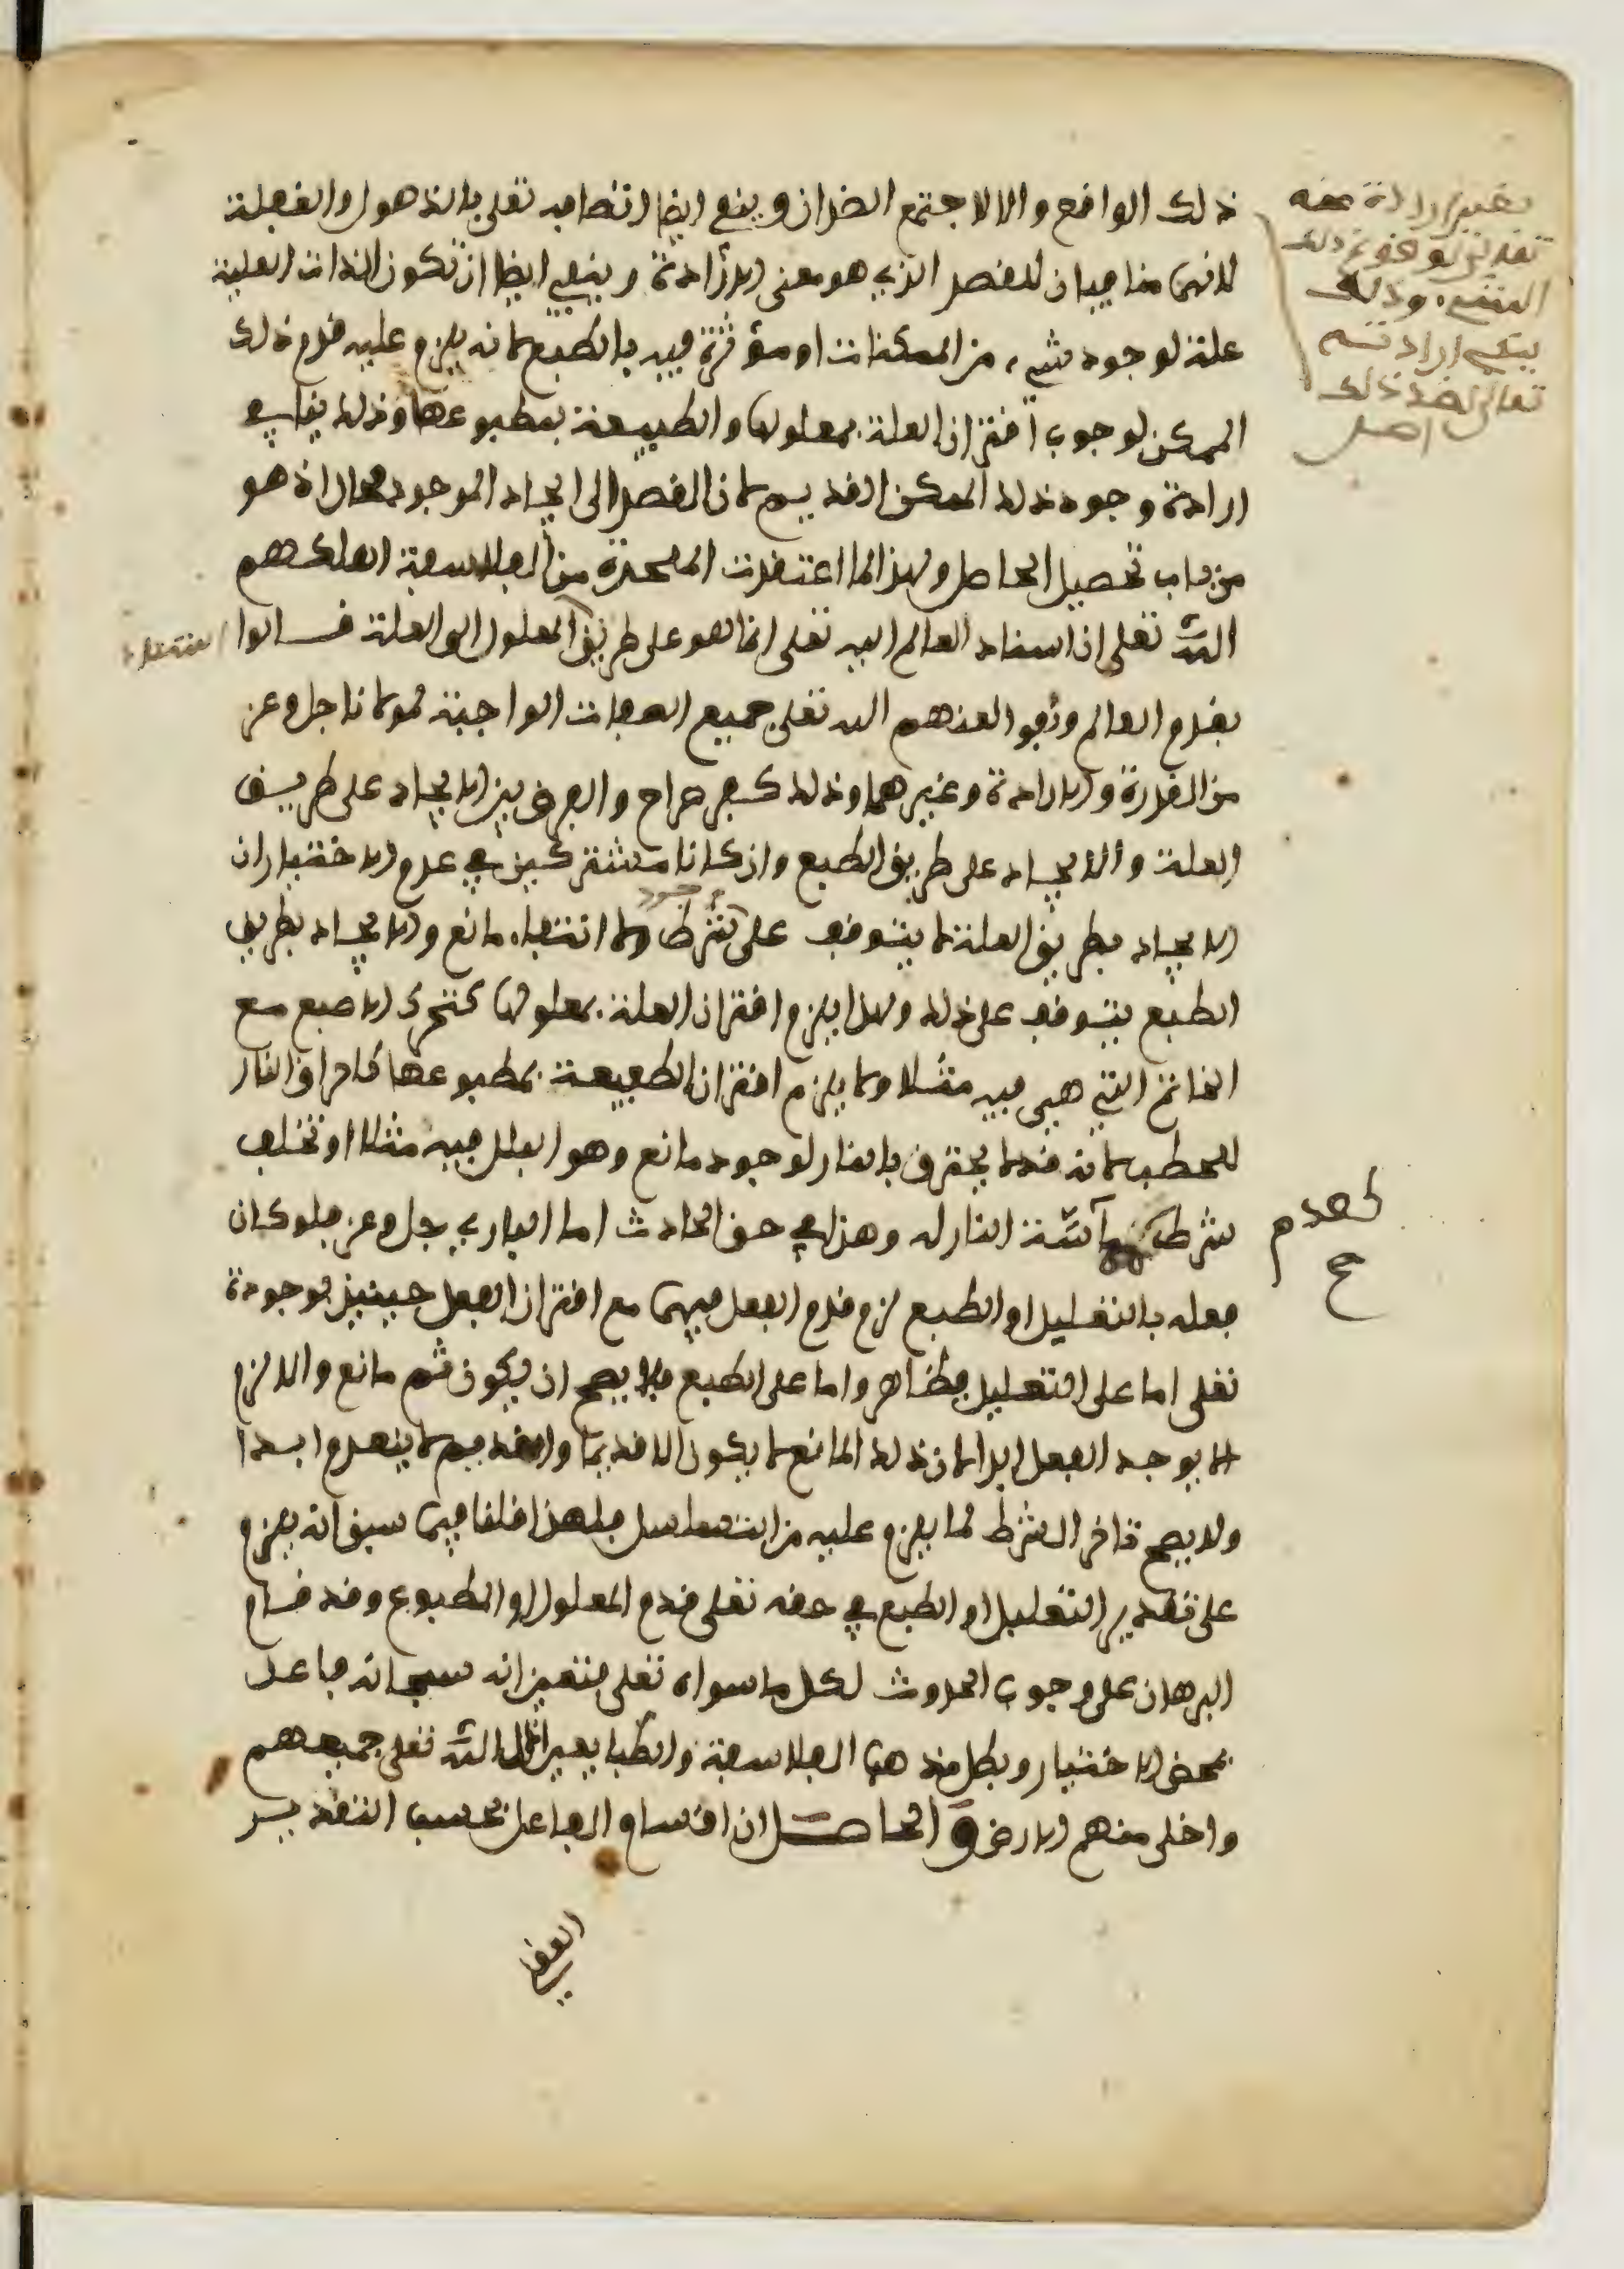 ذلك الواقع والا لاجتمع الضدان وينفي ايضا اتصافه تعلى بالذهول والغفلة
لانهما منافيان للقصد الذي هو معنى الارادة وينفي ايضا ان تكون الذات العلية
علة لوجود شيء من الممكنات او مؤثرة فيه بالطبع لانه يلزم عليه قدم ذلك
الممكن لوجوب اقتران العلة بمعلولها والطبيعة بمطبوعها وذلك ينافي
ارادة وجود ذلك الممكن القديم لان القصد الى ايجاد الموجود محال اذ هو
من باب تحصيل الحاصل ولهذا لما اعتقدت الملحدة من الفلاسفة اهلكهم
الله تعلى ان اسناد العالم اليه تعلى انما هو على طريق المعلول الى العلة قالوا
بقدم العالم ونفوا لعنهم الله تعلى جميع الصفات الواجبة لمولانا جل وعز
من القدرة والارادة وغيرهما وذلك كفر صراح والفرق بين الايجاد على طريق
العلة والايجاد على طريق الطبع وان كانا مشتركين في عدم الاختيار ان
الايجاد بطريق العلة لا يتوقف على وجود شرط ولا انتفاء مانع والايجاد بطريق
الطبع يتوقف على ذلك ولهذا يلزم اقتران العلة بمعلولها كتحرك الاصبع مع
الخاتم التي هي فيه مثلا ولا يلزم اقتران الطبيعة بمطبوعها كاحراق النار
للحطب لانه قد لا يحترق بالنار لوجود مانع وهو البلل فيه مثلا او تخلف
شرط كمماسة النار له وهذا في حق الحادث اما الباري جل وعز فلو كان
فعله بالتعليل او الطبع لزم قدم الفعل فيهما مع اقتران الفعل حينئذ بوجوده
تعلى اما على التعليل فظاهر واما على الطبع فلا يصح ان يكون ثم مانع والا لزم
الا يوجد الفعل ابدا لان ذلك المانع لا يكون الا قديما والقديم لا ينعدم ابدا
ولا يصح تاخر الشرط لما يلزم عليه من التسلسل فلهذا قلنا فيما سبق انه يلزم
على تقدير التعليل او الطبع في حقه تعلى قدم المعلول او المطبوع وقد قام
البرهان على وجوب الحدوث لكل ما سواه تعلى فتعين انه سبحانه فاعل
بمحض الاختيار وبطل مذهب الفلاسفة والطبايعيين اذل الله تعلى جميعهم
واخلى منهم الارض والحاصل ان اقسام الفاعل بحسب التقدير
العقلي
تعالى
ارادته
تعالى لضد ذلك
اصل
كعدم
صح